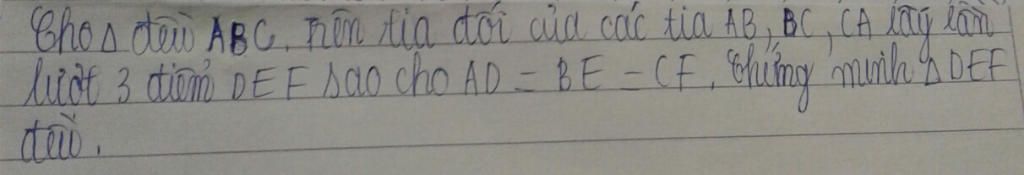 Cho Δ đều ABC, trên tia đối của các tia AB, BC, CA lấy lần
lượt 3 điểm D E F sao cho AD = BE = CF. Chứng minh Δ DEF
đều.